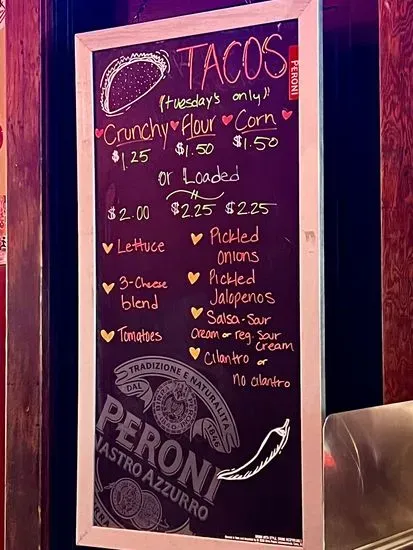 TACOS
PERONI
(tuesday's only)!
Crunchy Flour Corn
$1.25 $1.50 $1.50
or Loaded
$2.00 $2.25 $2.25
Lettuce
3-Cheese
blend
Tomatoes
Pickled
onions
Pickled
Jalapenos
Salsa-Sour
Cream or reg. Sour
Cream
Cilantro or
no cilantro
TRADIZIONE E NATURALITÀ
DAL 1846
PERONI
NASTRO AZZURRO